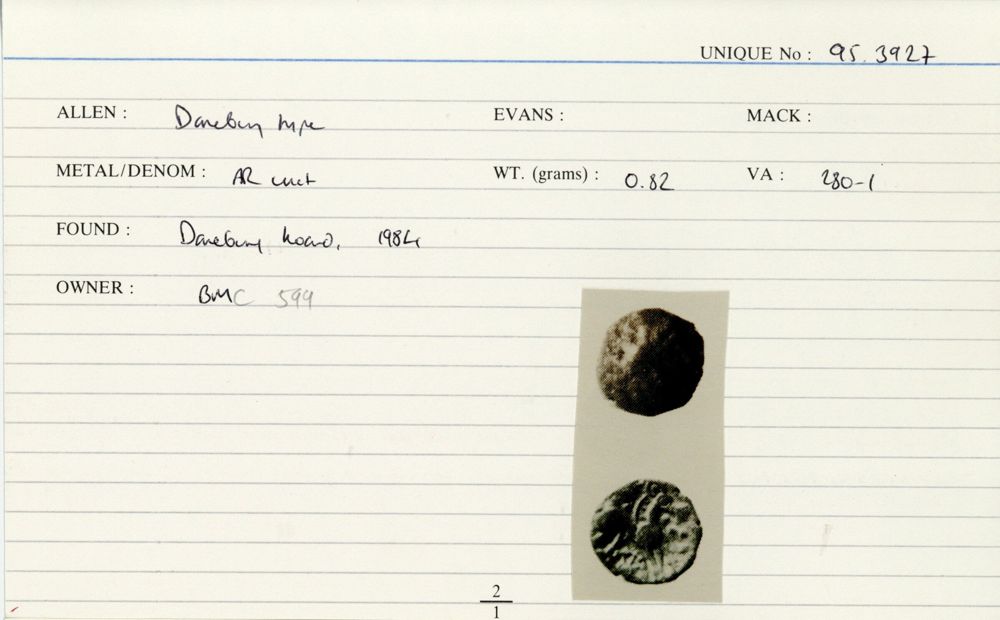 UNIQUE No : 95. 3927
ALLEN : Danebury type EVANS : MACK :
METAL/DENOM : AR unit WT. (grams) : 0.82 VA : 280-1
FOUND : Danebury hoard, 1984
OWNER : BMC 599
2
1